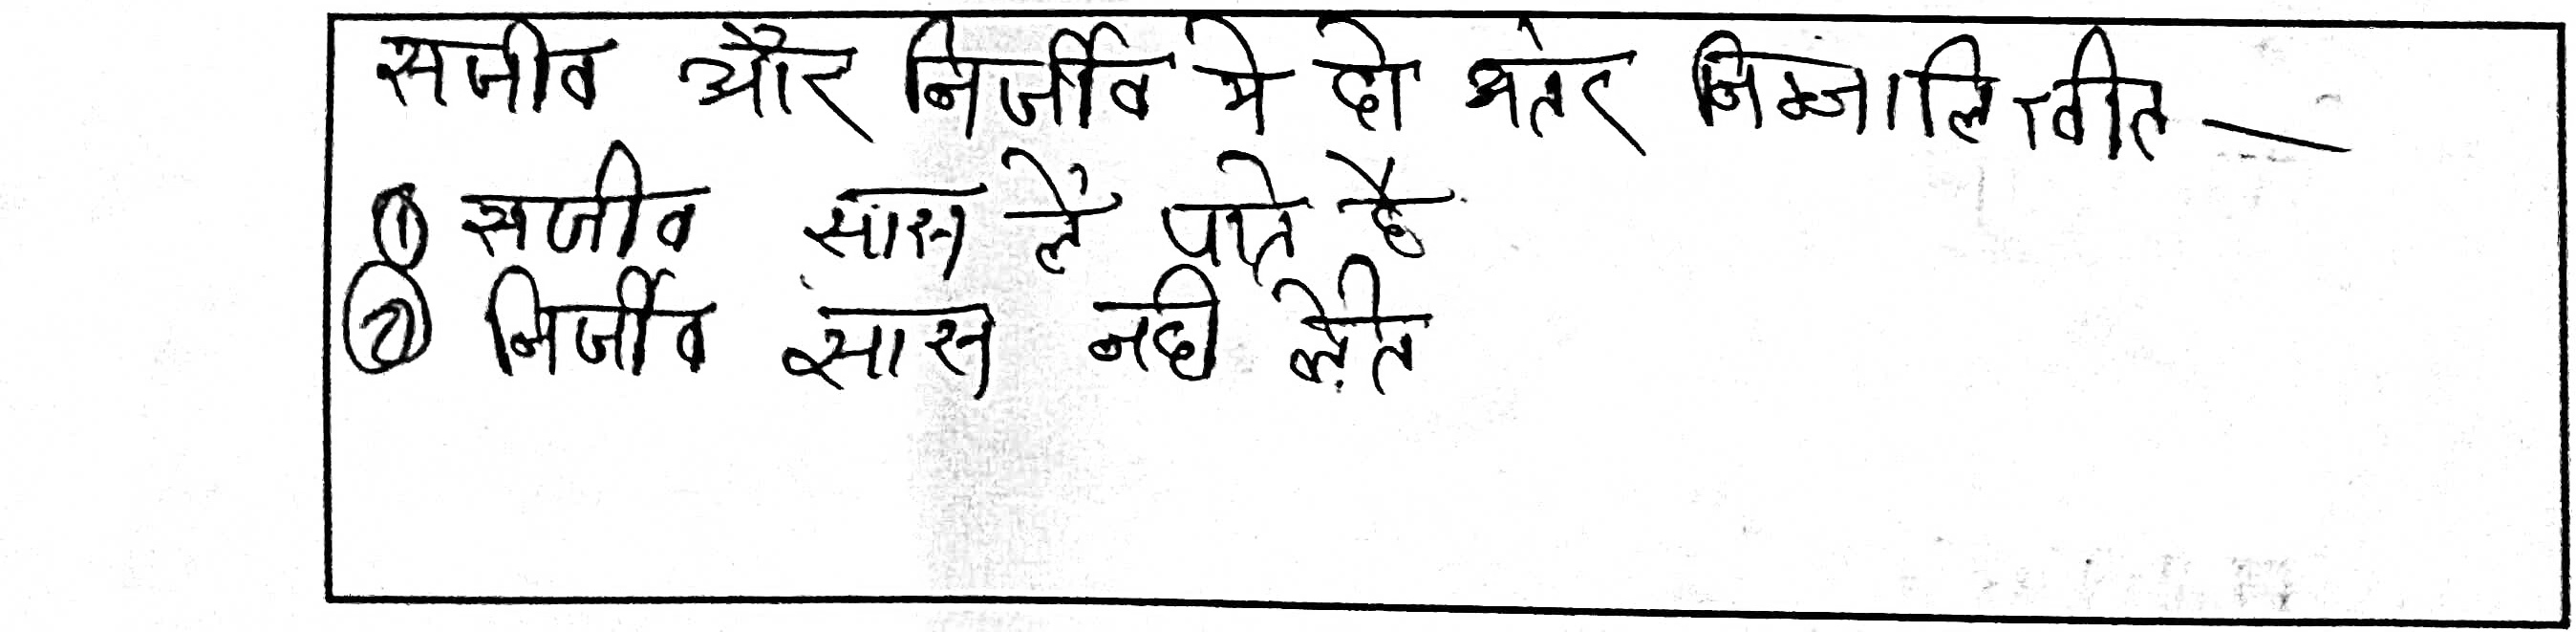 सजीव और निर्जीव मे दो अतंर निम्नालिखीत —
① सजीव सास लें पाते है
② निर्जीव सास नही लेते